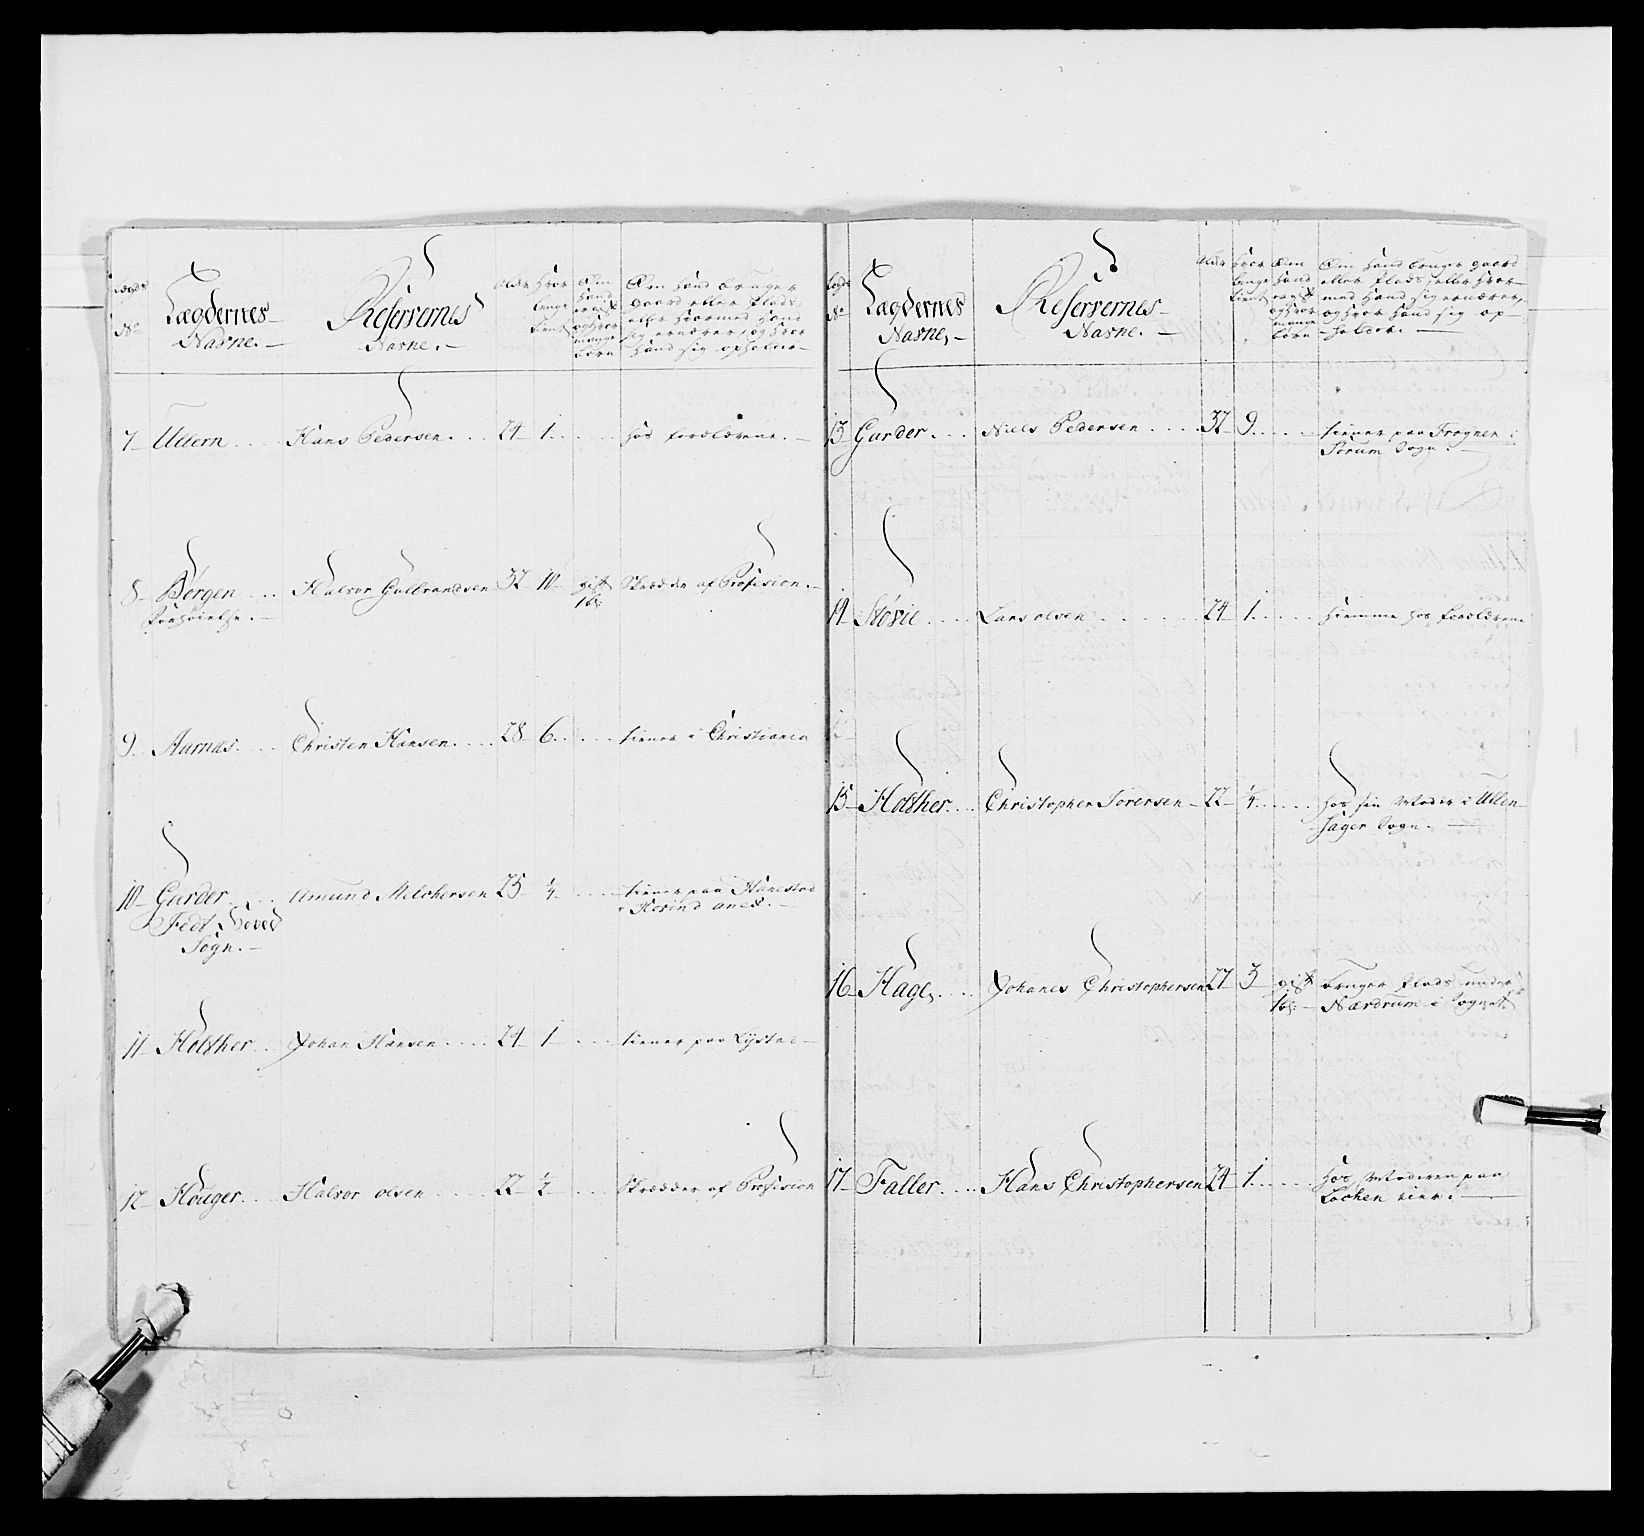 Lægds No
Lægdernes
Nafne.
Reservernes
Nafne.
Alder
hvor
længe
tient
Om
hand
er gift
og hvor
mange
børn
Om hand bruger
gaard eller plads,
eller hvormed hand
sig ernærer, og hvor
hand sig opholder
7 Ullern Hans Pedersen 24 1 hos forældrene.
8 Børgen Halvor Gulbrandsen 32 10 gift Skrædder af Profesion.
1 b:
9 Aurnæs Christen Hansen 28 6 tiener i Christiania
10 Garder Amund Melchersen 25 1/4 tiener paa Hanestad
Sogn.
11 Holther Johan Hansen 24 1 tiener paa Lystad
12 Houger Halvor olsen 22 1/2 Skrædder af Profesion
Lægds No
Lægdernes
Nafne,
Reservernes
Nafne.
Alder
hvor
længe
tient
Om
hand
er gift
og hvor
mange
børn
Om hand bruger gaard
eller plads, eller hvor-
med hand sig ernærer,
og hvor hand sig op-
holder.
13 Garder Niels Pedersen 32 9 tiener paa Frogner i
Sørum Sogn.
14 Lars olsen 24 1 hiemme hos forældrene
15 Holther Christopher Sørensen 22 1/4 hos sin Moder i Ullen-
sager Sogn.
16 Hage, Johanes Christophersen 27 3 gift bruger Plads under
1 b: Nærdrum i Sognet
17 Faller Hans Christophersen 24 1 hos Moderen paa